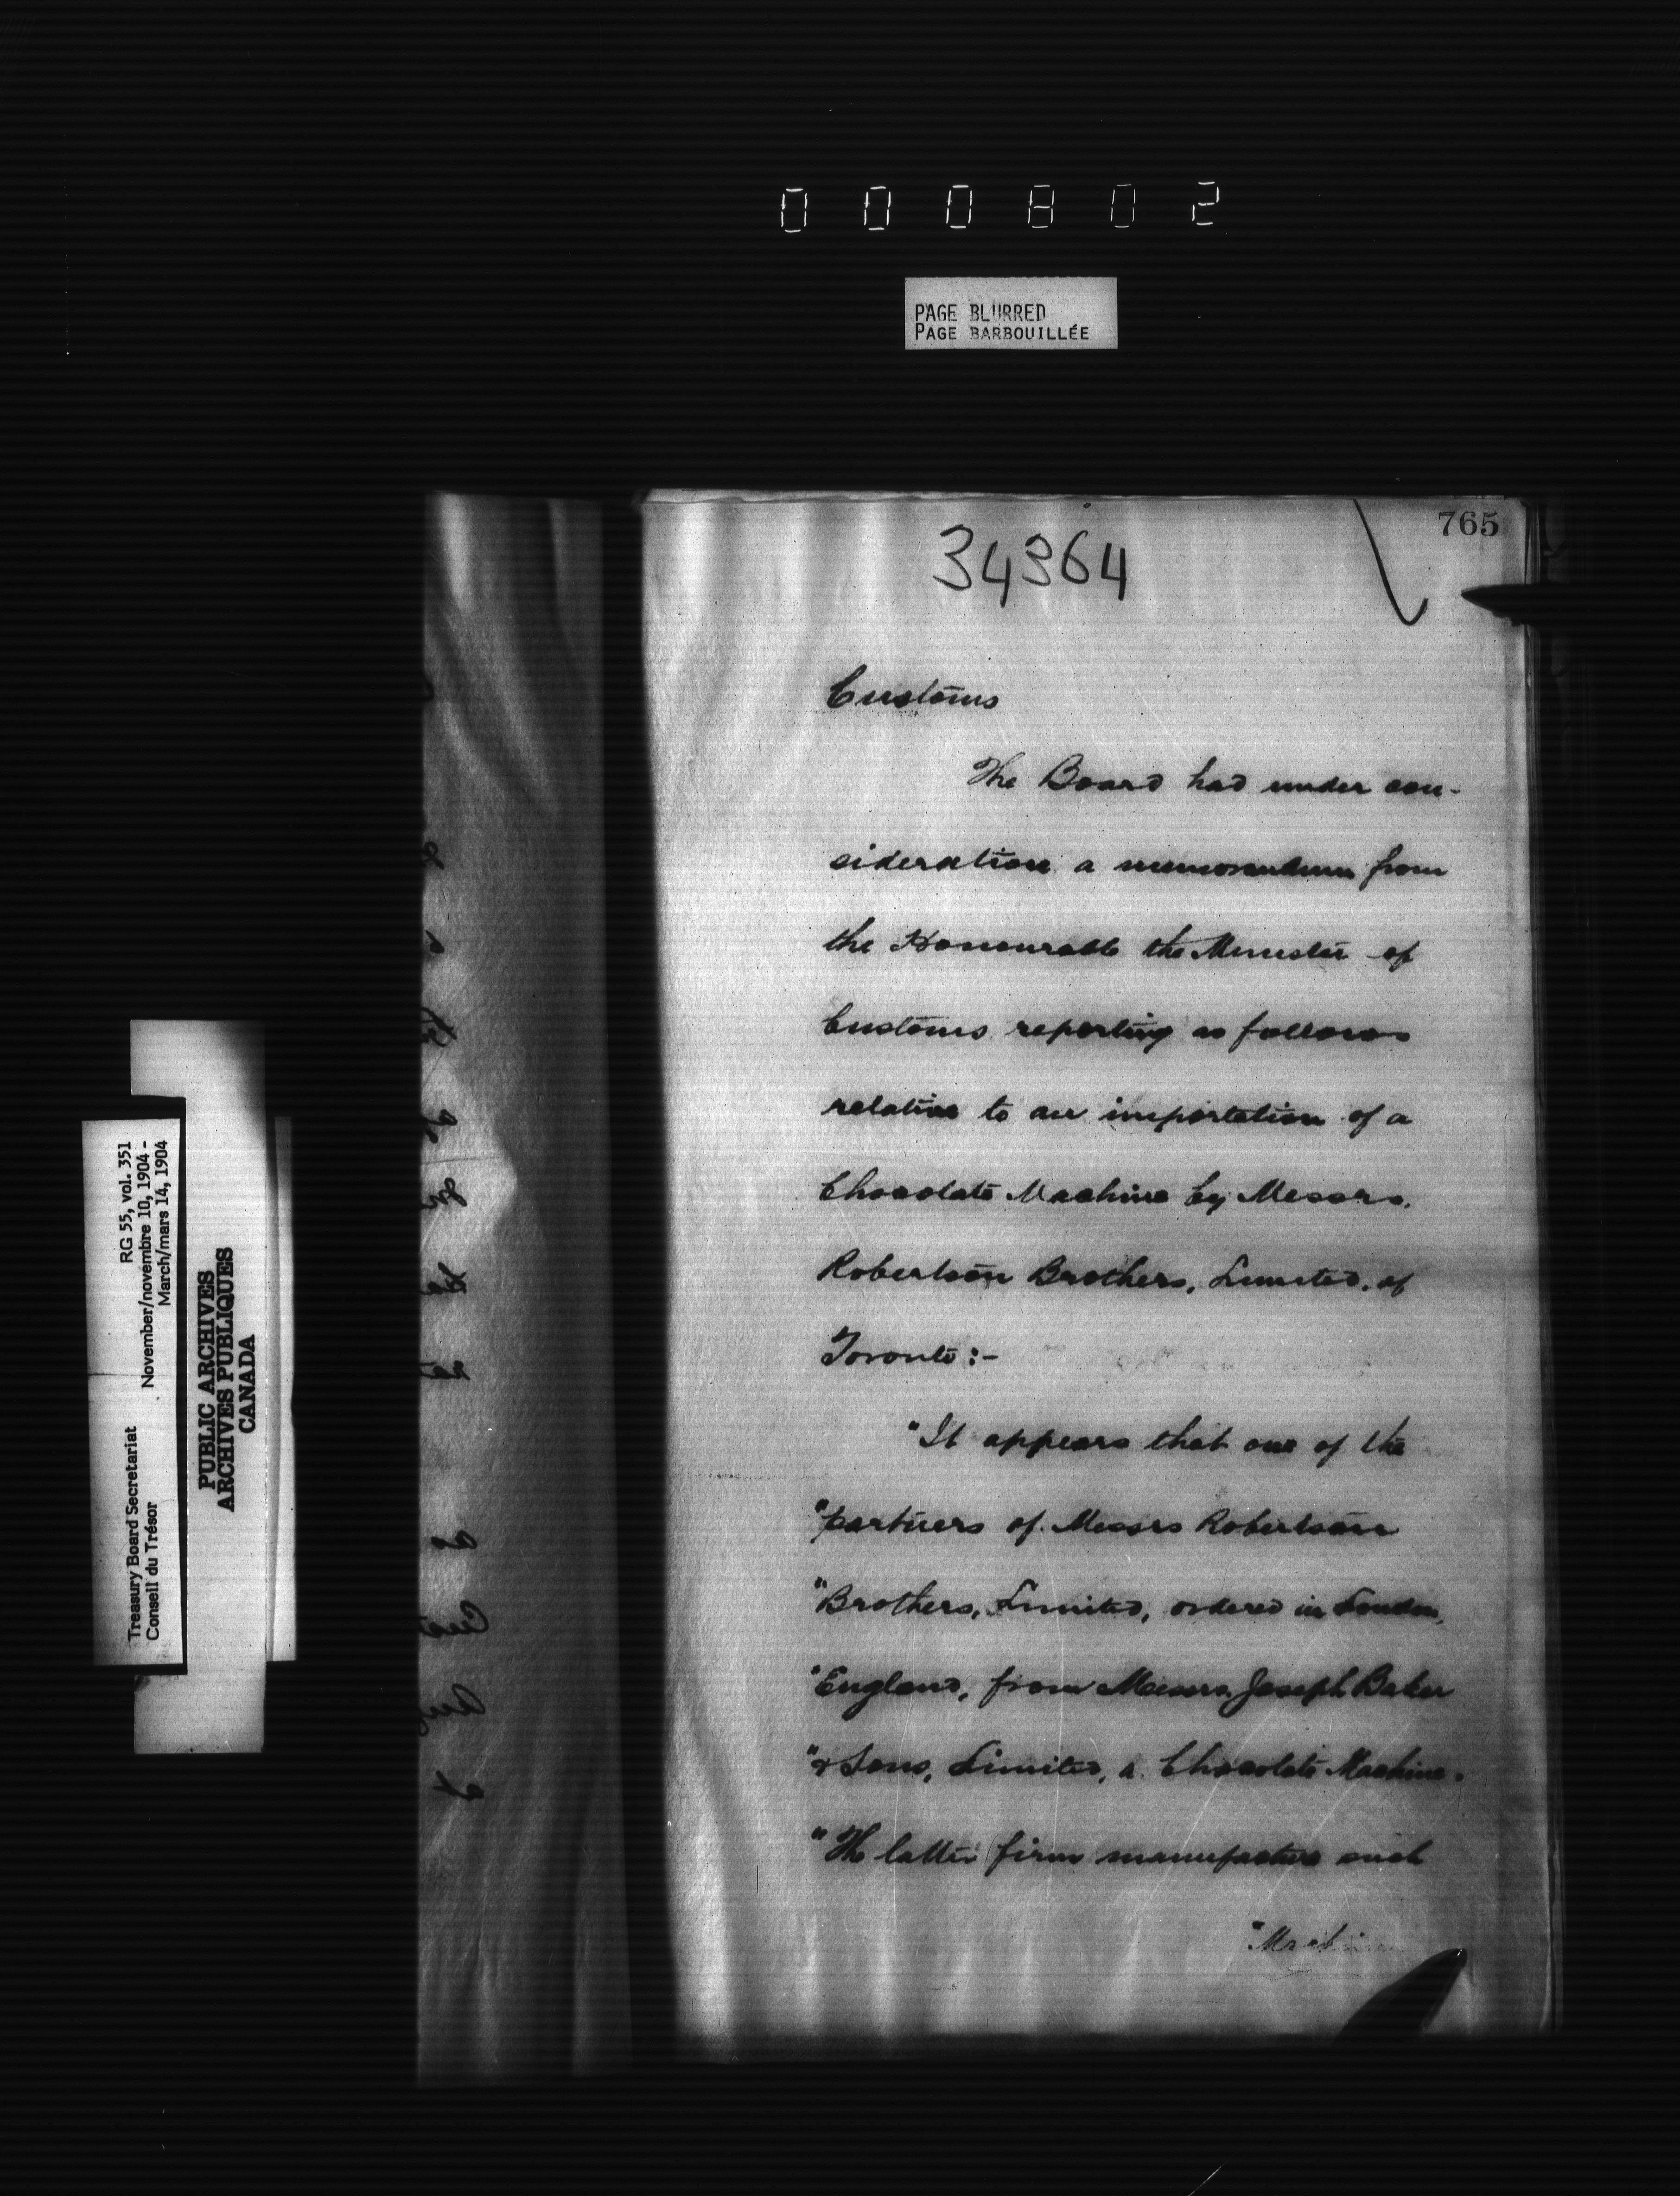 000802
PAGE BLURRED
PAGE BARBOUILLÉE
765
34364
Customs
The Board had under con-
sideration a memorandum from
the Honourable the Minister of
Customs reporting as follows
relative to an importation of a
Chocolate Machine by Messrs.
Robertson Brothers, Limited, of
Toronto:-
"It appears that one of the
"partners of Messrs Robertson
"Brothers, Limited, ordered in London,
"England, from Messrs Joseph Baker
"& Sons, Limited, a Chocolate Machine.
"The latter firm manufacture such
Treasury Board Secretariat RG 55, vol. 351
Conseil du Trésor November/novembre 10, 1904 -
March/mars 14, 1904
PUBLIC ARCHIVES
ARCHIVES PUBLIQUES
CANADA